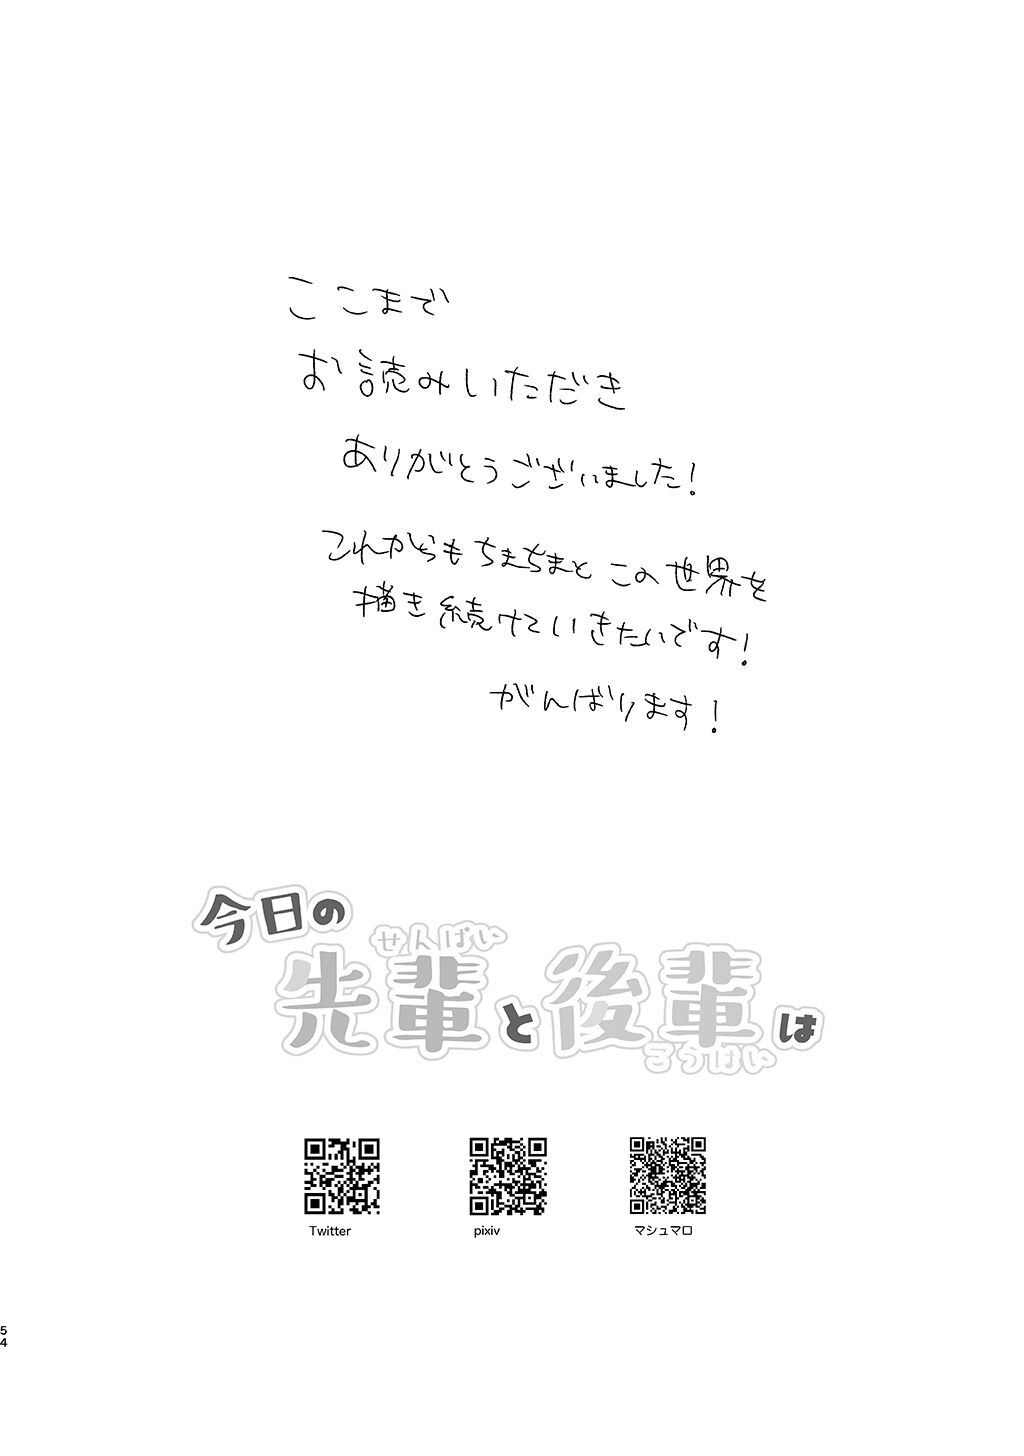 ここまで
お読みいただき
ありがとうございました!
これからもちまちまとこの世界を
描き続けていきたいです!
がんばります!
今日の
せんぱい
先輩と後輩は
こうはい
Twitter
pixiv
マシュマロ
54